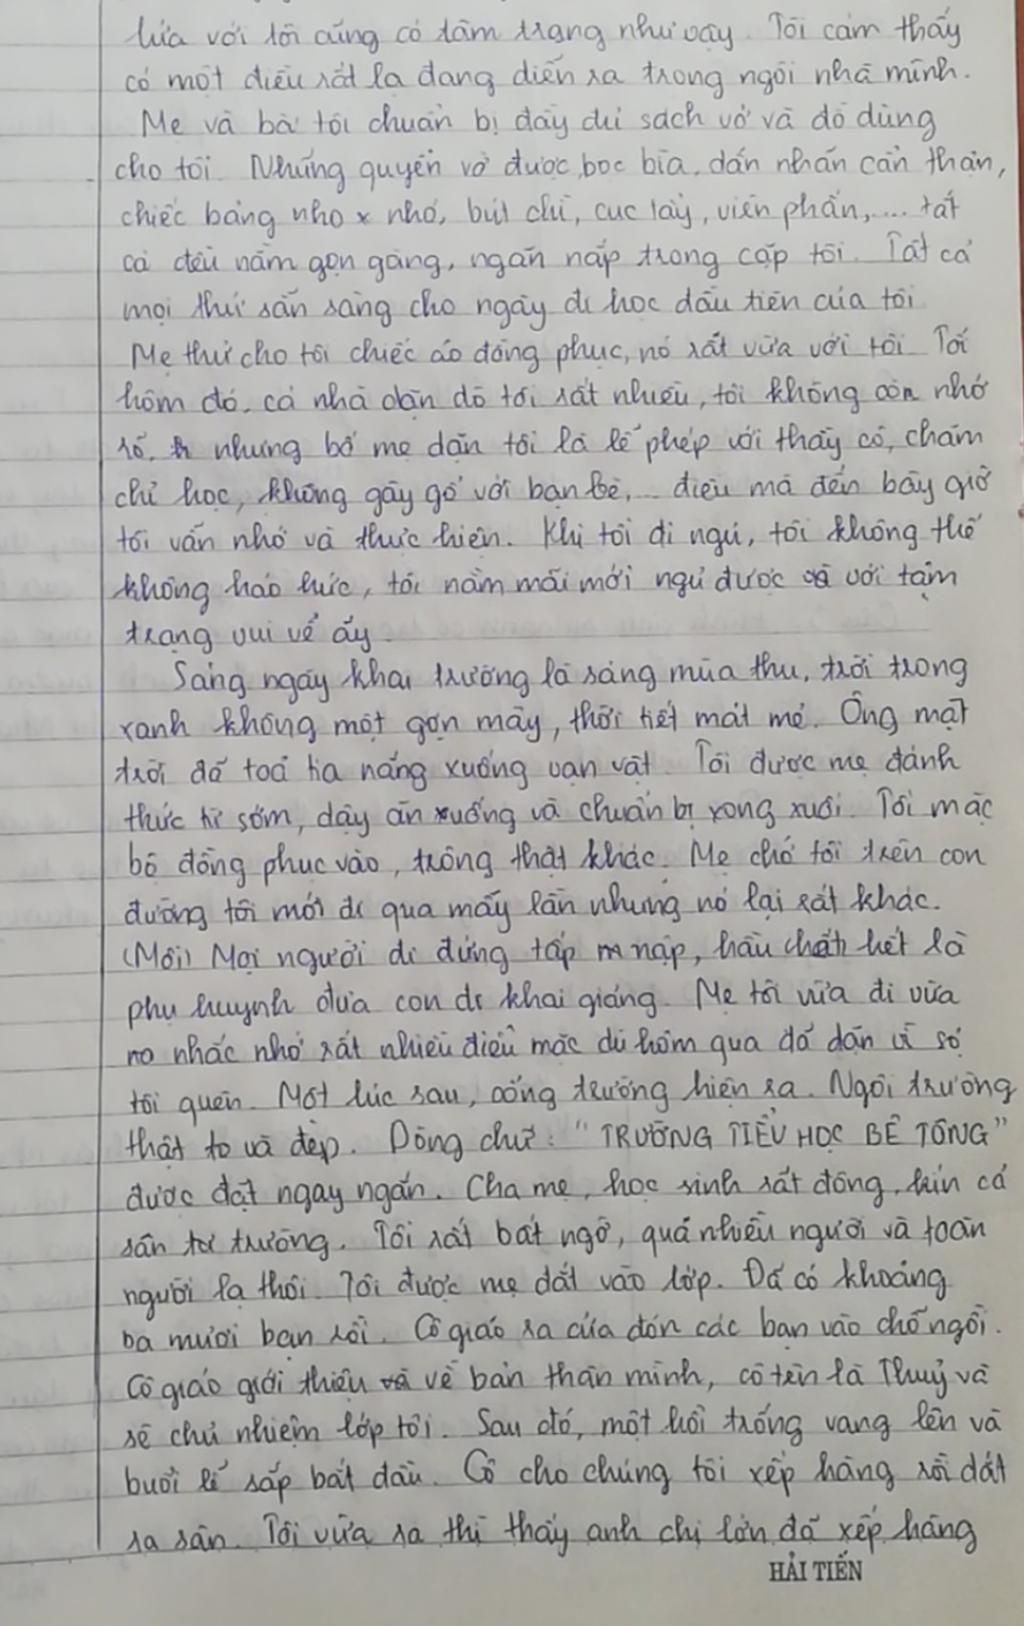 lứa với tôi cũng có tâm trạng như vậy. Tôi cảm thấy
có một điều rất lạ đang diễn ra trong ngôi nhà mình.
Mẹ và bà tôi chuẩn bị đầy đủ sách vở và đồ dùng
cho tôi. Những quyển vở được bọc bìa, dán nhãn cẩn thận,
chiếc bảng nho x nhỏ, bút chì, cục tẩy, viên phấn,.... tất
cả đều nằm gọn gàng, ngăn nắp trong cặp tôi. Tất cả
mọi thứ sẵn sàng cho ngày đi học đầu tiên của tôi
Mẹ thử cho tôi chiếc áo đồng phục, nó rất vừa với tôi. Tối
hôm đó, cả nhà dặn dò tôi rất nhiều, tôi không còn nhớ
rõ, nhưng bố mẹ dặn tôi là lễ phép với thầy cô, chăm
chỉ học, không gây gổ với bạn bè,... điều mà đến bây giờ
tôi vẫn nhớ và thực hiện. Khi tôi đi ngủ, tôi không thể
không háo hức, tôi nằm mãi mới ngủ được với tâm
trạng vui vẻ ấy.
Sáng ngày khai trường là sáng mùa thu, trời trong
xanh không một gợn mây, thời tiết mát mẻ. Ông mặt
trời đã toả tia nắng xuống vạn vật. Tôi được mẹ đánh
thức từ sớm, dậy ăn xuống và chuẩn bị xong xuôi. Tôi mặc
bộ đồng phục vào, trông thật khác. Mẹ chở tôi trên con
đường tôi mới đi qua mấy lần nhưng nó lại rất khác.
(Mới) Mọi người đi đứng tấp nập, hầu hết là
phụ huynh đưa con đi khai giảng. Mẹ tôi vừa đi vừa
no nhắc nhở rất nhiều điều mặc dù hôm qua đã dặn vì sợ
tôi quên. Một lúc sau, cổng trường hiện ra. Ngôi trường
thật to và đẹp. Dòng chữ: "TRƯỜNG TIỂU HỌC BÊ TÔNG"
được đặt ngay ngắn. Cha mẹ, học sinh rất đông, kín cả
sân trường. Tôi rất bất ngờ, quá nhiều người và toàn
người lạ thôi. Tôi được mẹ dắt vào lớp. Đã có khoảng
ba mươi bạn rồi. Cô giáo ra cửa đón các bạn vào chỗ ngồi.
Cô giáo giới thiệu về bản thân mình, cô tên là Thuỷ và
sẽ chủ nhiệm lớp tôi. Sau đó, một hồi trống vang lên và
buổi lễ sắp bắt đầu. Cô cho chúng tôi xếp hàng rồi dắt
ra sân. Tôi vừa ra thì thấy anh chị lớn đã xếp hàng
HẢI TIẾN